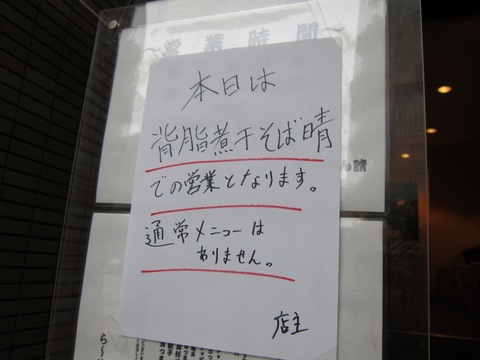 営業時間
本日は
背脂煮干そば晴
での営業となります。
通常メニューは
ありません。
店主
ん晴
らーめ